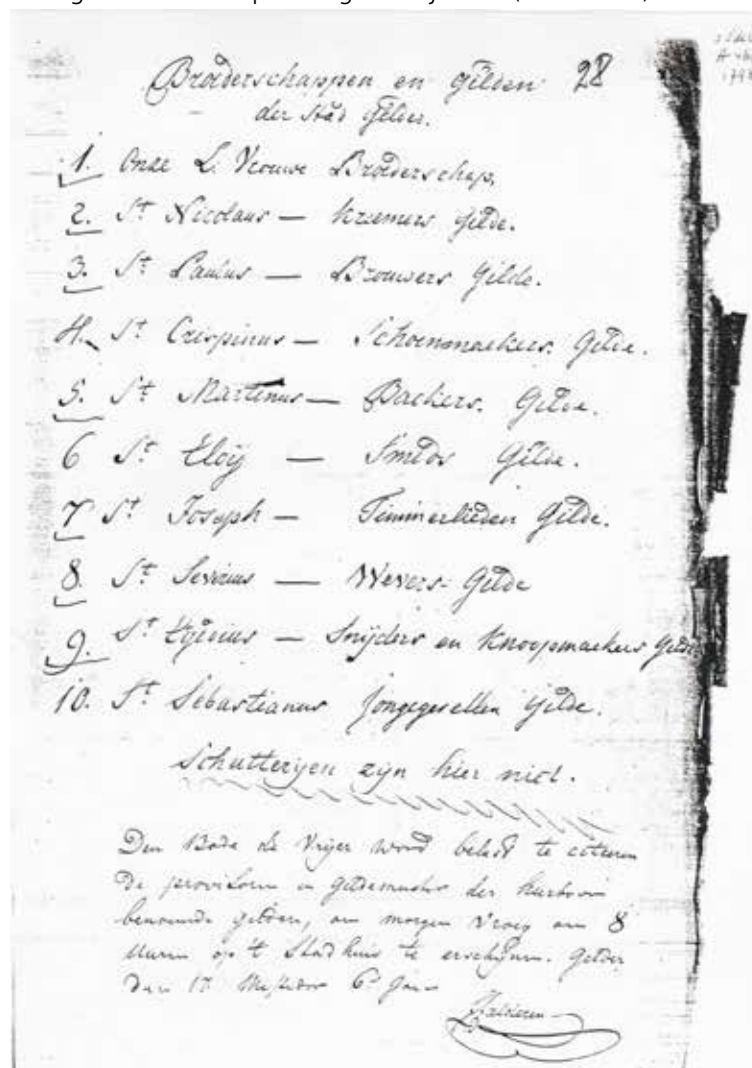 Broederschappen en gilden 28
der stad Gelder.
1. Onze L. Vrouwe Broederschap.
2. St Nicolaus — Kraemers Gilde.
3. St Paulus — Brouwers Gilde.
4. St Crispinus — Schoenmaekers. Gilde.
5. St Martinus — Backers. Gilde.
6 St Eloÿ — Smeds Gilde.
7 St Joseph — Timmerlieden Gilde.
8. St Severus — Wevers Gilde
9. St Egidius — Snÿders en Knoopmaekers Gilde
10. St Sebastianus Jongegesellen Gilde.
Schutteryen zijn hier niet.
Den Bode de Vrijer word belast te citeren
De provisoren en Gildemeesters der hierboven
benoemde gilden, om morgen vroeg om 8
uuren op 't Stadhuis te erschijnen. Gelder
Den 17 Messidor 6e Jaer